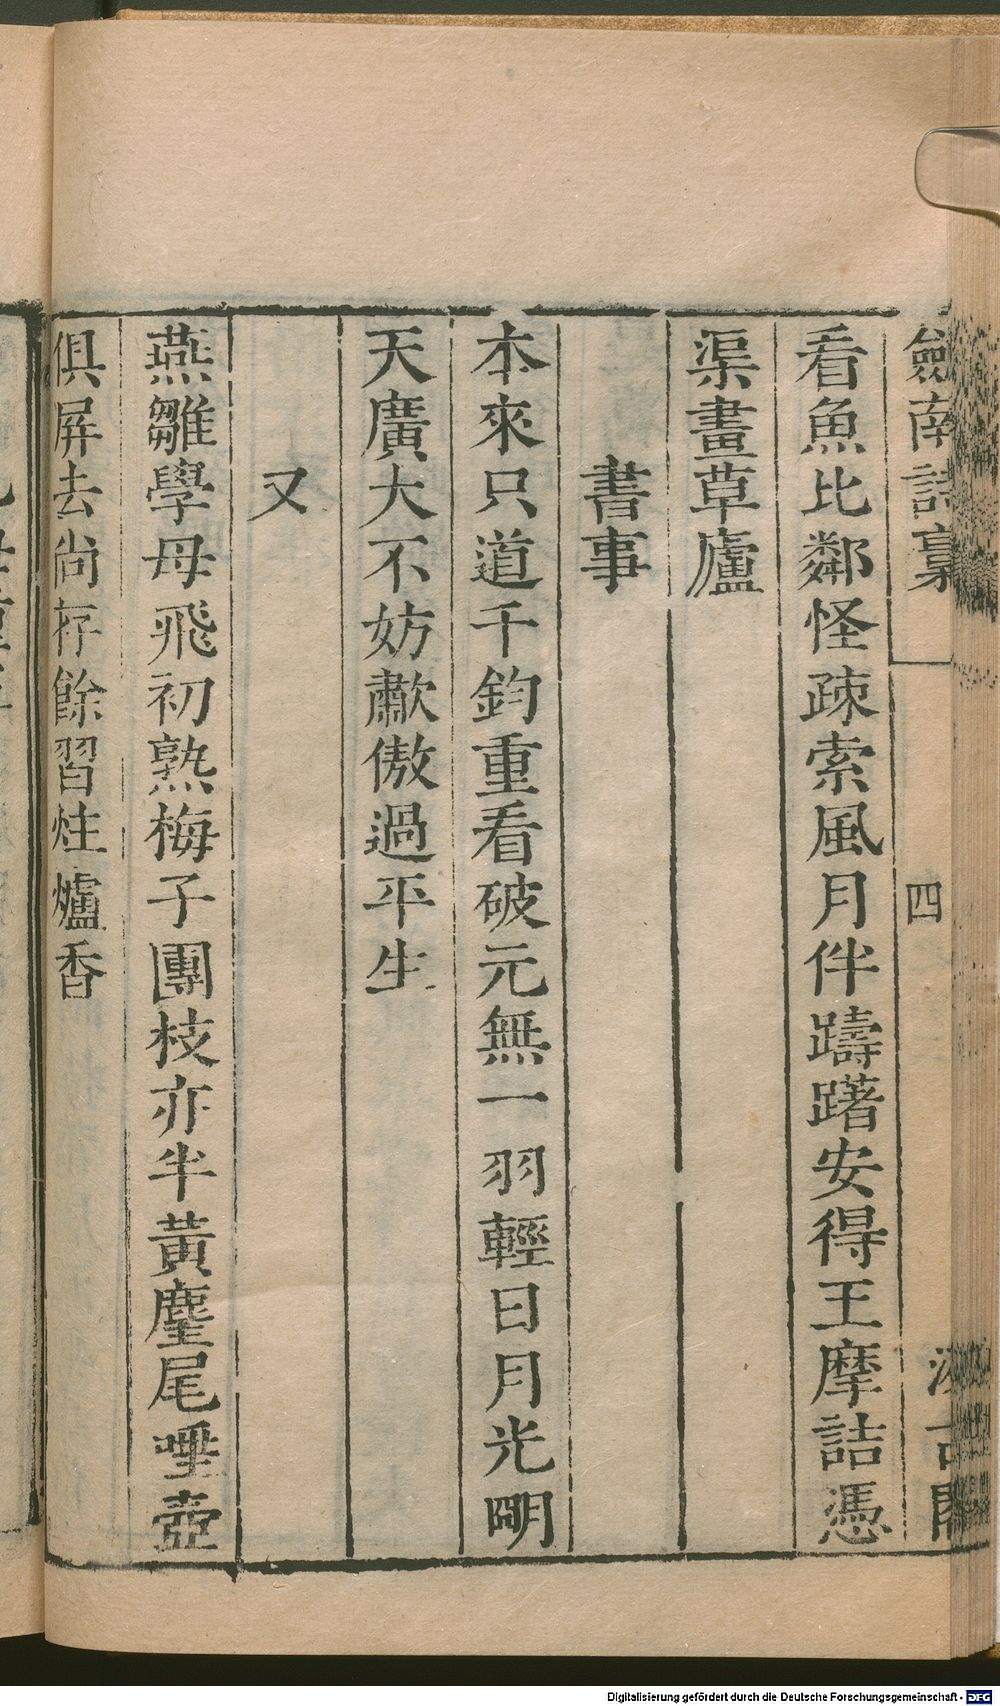 劍南詩稾 四 汲古閣
看魚比鄰怪疎索風月伴躊躇安得王摩詰憑
渠畫草廬
書事
本來只道千鈞重看破元無一羽輕日月光明
天廣大不妨歗傲過平生
又
燕雛學母飛初熟梅子團枝亦半黃麈尾唾壺
俱屛去尚存餘習炷爐香
Digitalisierung gefördert durch die Deutsche Forschungsgemeinschaft - DFG